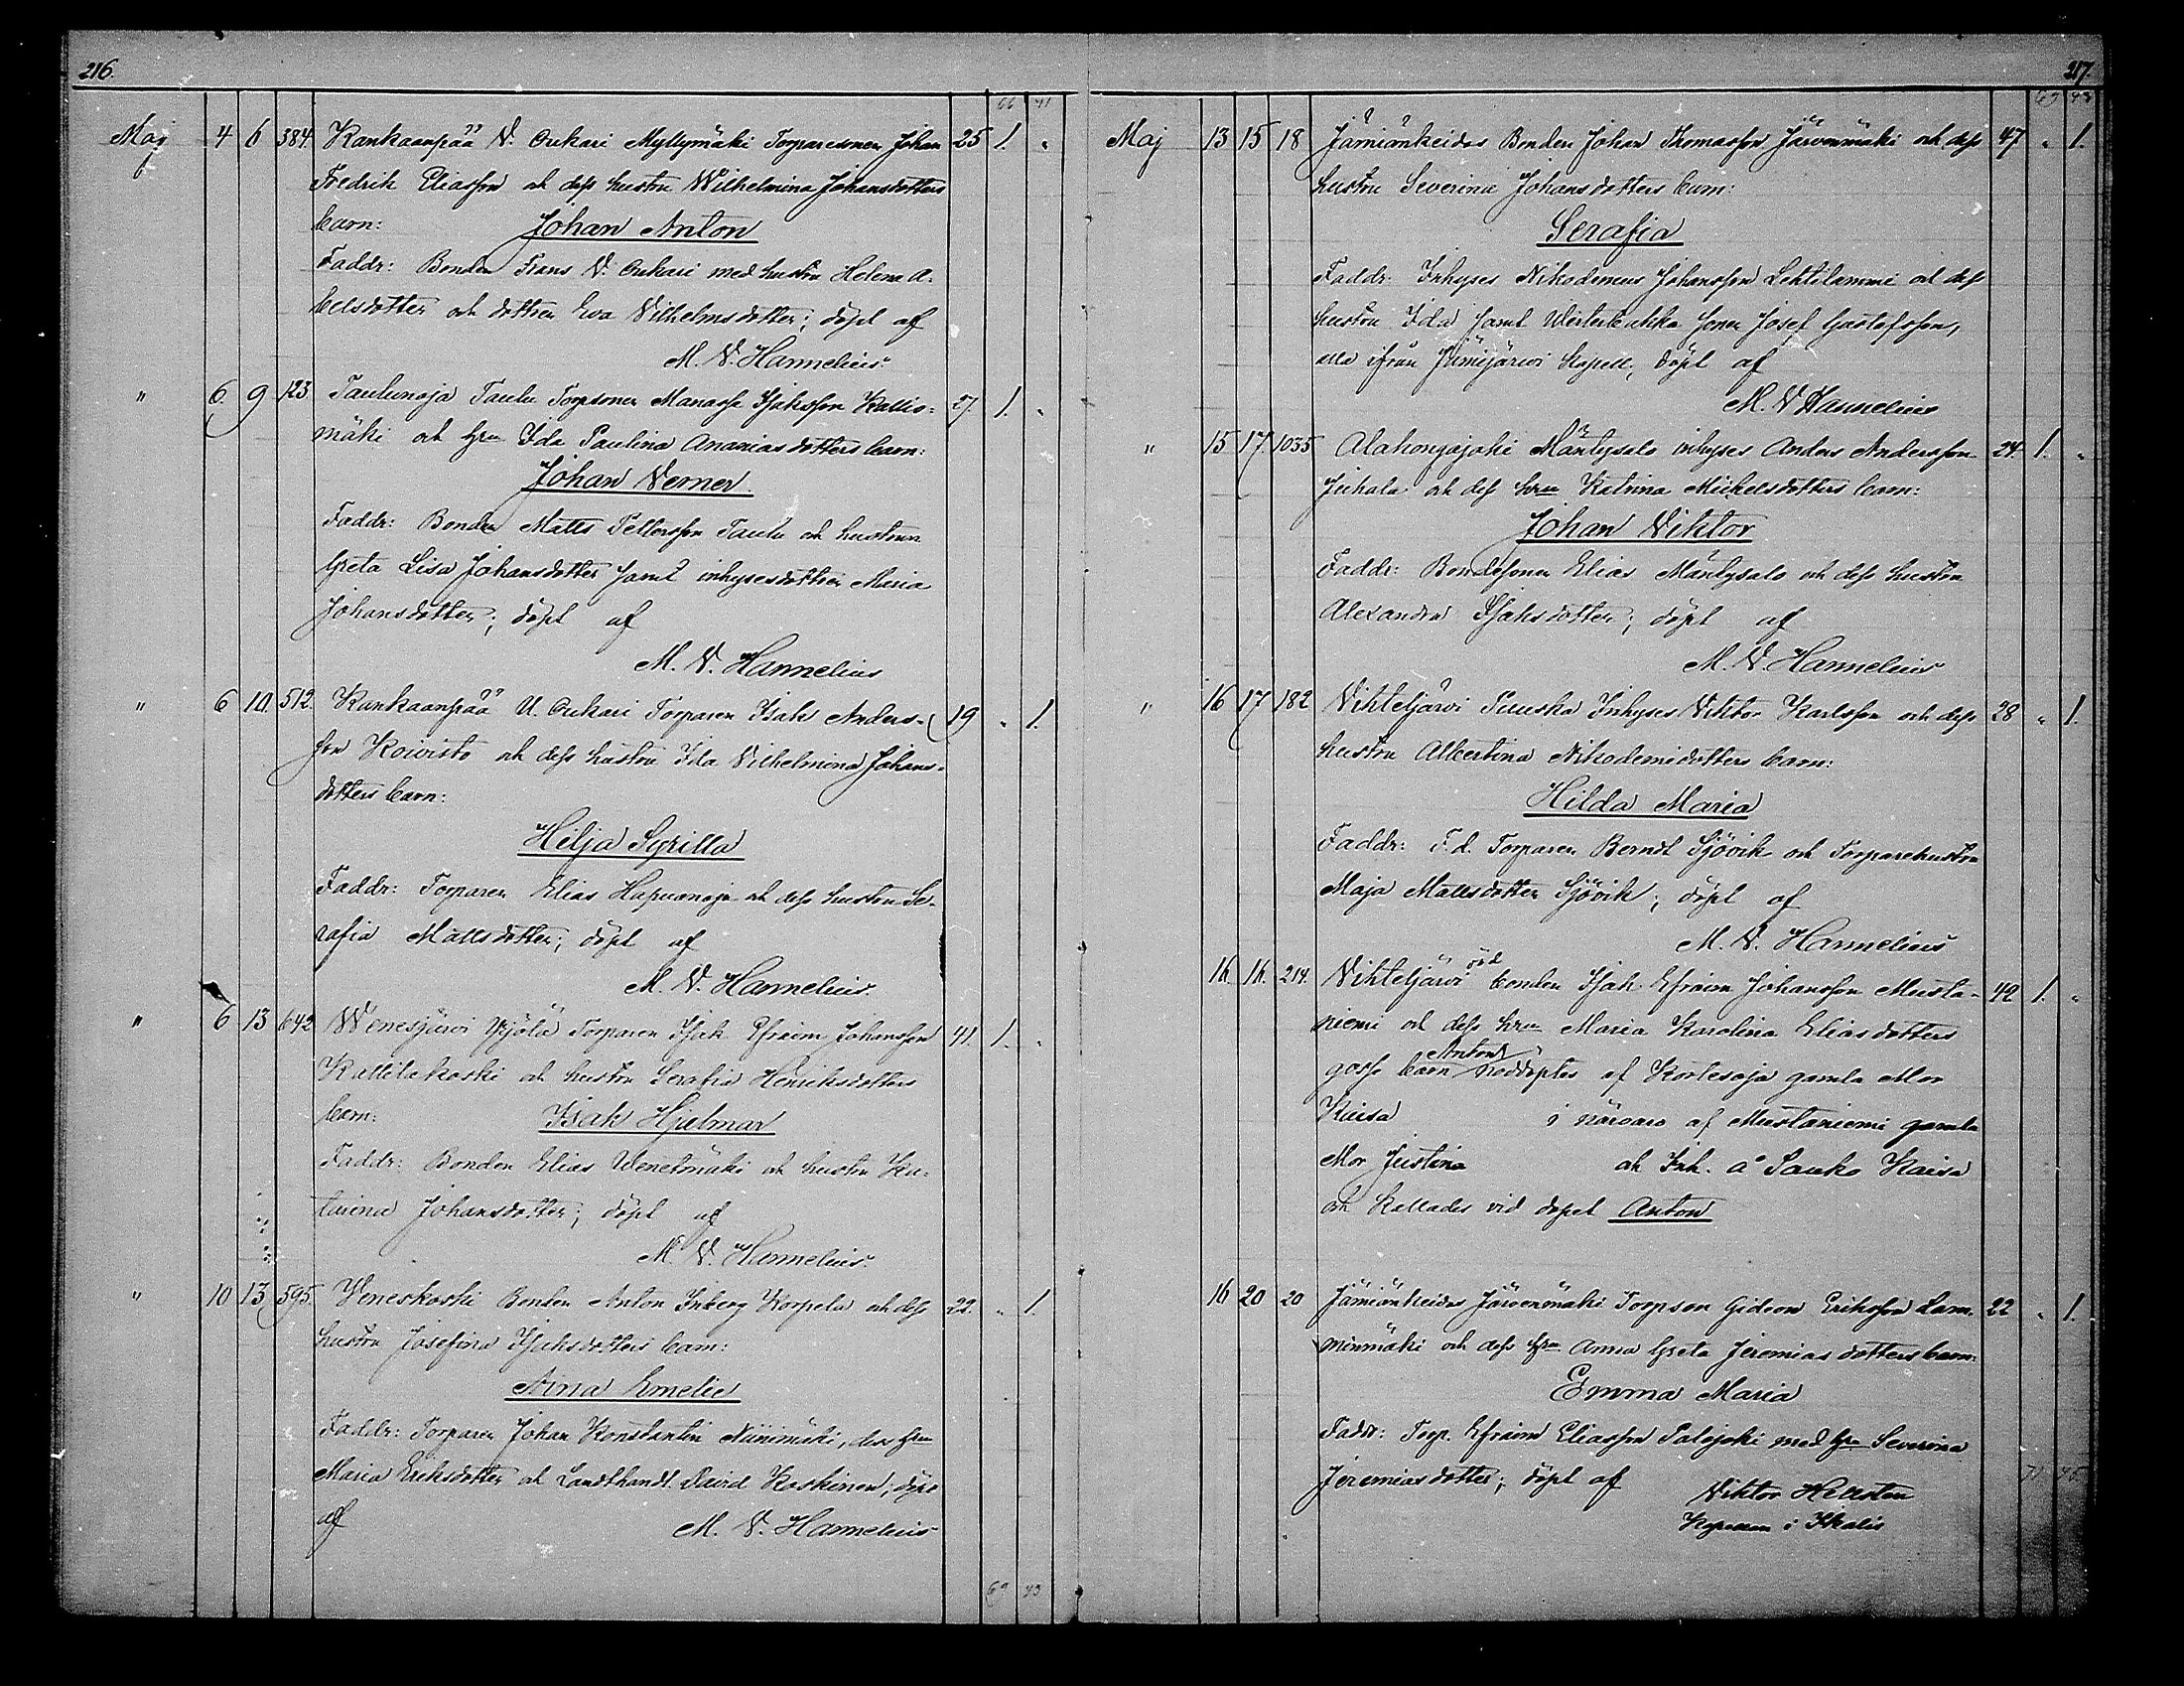 216.
66 41
Maj 4 6 384. Kankaanpää N. Oukari Myllymäki Torparesonen Johan 25 1. "
Fredrik Eliasson och dess hustru Wilhelmina Johansdotters
barn: Johan Anton
Faddr: Bonden Frans N. Oukari med hustru Helena A-
belsdotter och dottren Eva Vilhelmsdotter; döpt af
M. V. Hannelius.
" 6 9 123. Taulunoja Taulu Torpsonen Manasse Isaksson Kallio= 27. 1. "
mäki och hru Ida Paulina Ananiasdotters barn:
Johan Verner.
Faddr: Bonden Matts Pettersson Taulu och hustrun
Greta Lisa Johansdotter samt inhysesdottren Maria
Johansdotter; döpt af
M. V. Hannelius
" 6 10. 512. Kankaanpää U. Oukari Torparen Isak Anders- 19 " 1.
son Koivisto och dess hustru Ida Vilhelmina Johans-
dotters barn:
Hilja Syrilla
Faddr: Torparen Elias Hapuanoja och dess hustru Se-
rafia Mattsdotter; döpt af
M. V. Hannelius.
" 6 13 642 Wenesjärvi Yijölä Torparen Isak Efraim Johansson 41. 1. "
Kallilakoski och hustru Serafia Henriksdotters
barn: Isak Hjalmar
Faddr: Bonden Elias Wenetmäki och hustru Ka-
tarina Johansdotter; döpt af
M. V. Hannelius.
" 10 13 595. Veneskoski Bonden Anton Inberg Korpela och dess 22. " 1.
hustru Josefina Isaksdotters barn:
Aina Emelie
Faddr: Torparen Johan Konstantin Niinimäki, dess hru
Maria Eriksdotter och Landthandl. David Koskinen; döpt
af M. V. Hannelius
69 43
217.
69 43
Maj 13 15 18 Jämiänkeidas Bonden Johan Thomasson Järvenmäki och dess 47 " 1.
hustru Severina Johansdotters barn:
Serafia
Faddr: Inhyses Nikodemus Johansson Lehtilammi och dess
hustru Ida samt Westerbakka sonen Josef Gustafsson,
alla ifrån Jämijärvi Kapell; döpt af
M. V Hannelius
" 15 17. 1035 Alahongajoki Mäntysalo inhyses Anders Andersson 24. 1. "
Juhala och dess hru Katrina Mickelsdotters barn:
Johan Viktor
Faddr: Bondesonen Elias Mäntysalo och dess hustru
Alexandra Isaksdotter; döpt af
M. V. Hannelius
" 16 17 182 Vihteljärvi Puuska Inhyses Viktor Karlsson och dess 28 " 1.
hustru Albertina Nikodemidotters barn:
Hilda Maria
Faddr: F.d. Torparen Berndt Sjövik och Torparehustru
Maja Mattsdotter Sjövik; döpt af
M. V. Hannelius
16. 16. 214. Vihteljärvi bonden Isak Efraim Johansson Musta- 42 1. "
niemi och dess hru Maria Karolina Eliasdotters
gosse barn Anton nöddöptes af Kortesoja gamla Mor
Kaisa i närvaro af Mustaniemi gamla
Mor Justina och Inh. å Sauko Kaisa
och kallades vid dopet Anton
16 20 20 Jämiänkeidas Järvenmäki Torpson Gideon Eriksson Lam- 22 " 1.
minmäki och dess hru Anna Greta Jeremiasdotters barn:
Emma Maria
Faddr: Torp. Efraim Eliasson Palojoki med hru Severina
Jeremiasdotter; döpt af Viktor Hellsten
Kapellan i Ikalis
71 45